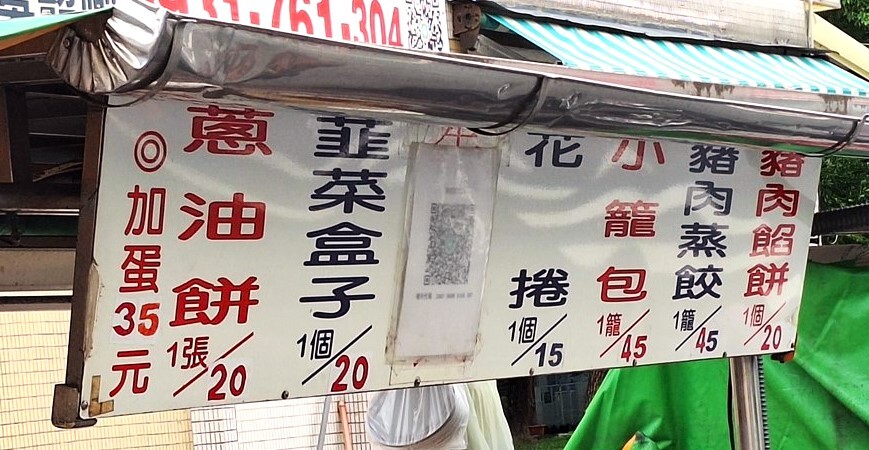 931·761·304
豬肉餡餅 1個/20
豬肉蒸餃 1籠/45
小籠包 1籠/45
花捲 1個/15
韮菜盒子 1個/20
蔥油餅 1張/20
◎加蛋35元